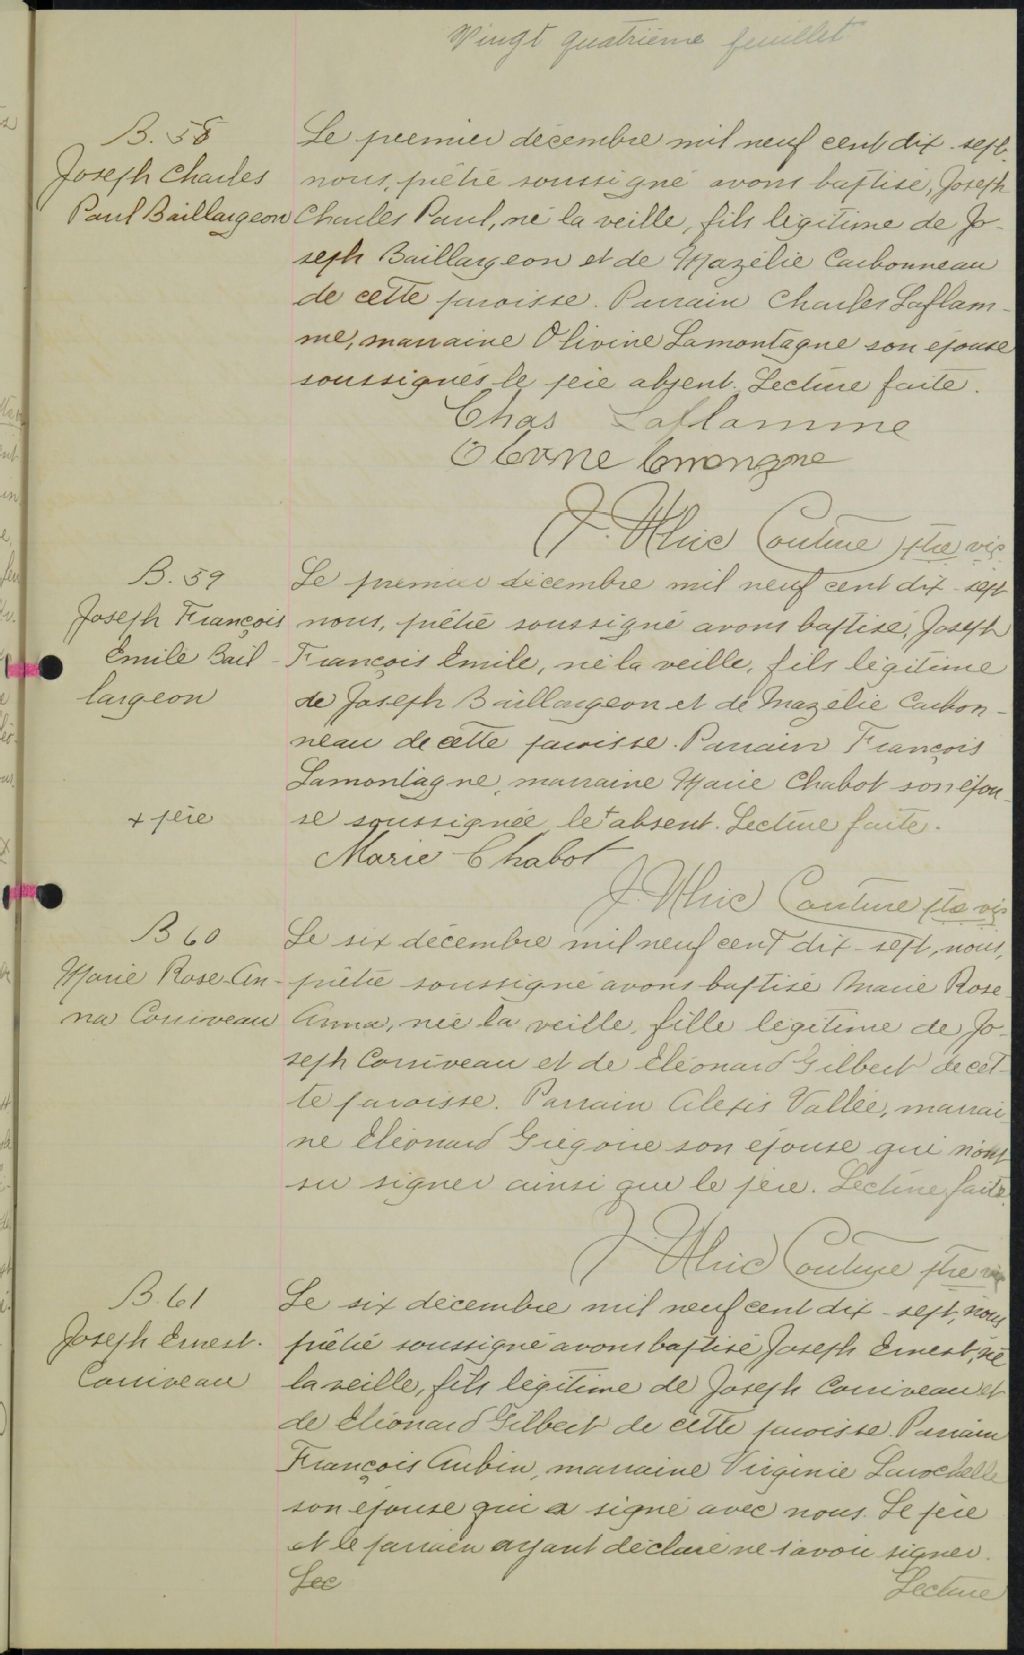 Vingt quatrième feuillet
B. 58
Joseph Charles
Paul Baillargeon
Le premier décembre mil neuf cent dix-sept,
nous, prêtre soussigné avons baptisé, Joseph
Charles Paul, né la veille, fils légitime de Jo-
seph Baillargeon et de Mazélie Carbonneau
de cette paroisse. Parrain Charles Laflam-
me, marraine Olivine Lamontagne son épouse
soussignés le père absent. Lecture faite.
Chas Laflamme
J. Ulric Couture ptre vic
B. 59
Joseph François
Emile Bail-
largeon
Le premier décembre mil neuf cent dix-sept
nous, prêtre soussigné avons baptisé, Joseph
François Emile, né la veille, fils légitime
de Joseph Baillargeon et de Mazélie Carbon-
neau de cette paroisse. Parrain François
Lamontagne, marraine Marie Chabot son épou-
+ père
se soussignée, le + absent. Lecture faite.
Marie Chabot
J. Ulric Couture ptre vic
B 60
Marie Rose-An-
na Corriveau
Le six décembre mil neuf cent dix-sept, nous,
prêtre soussigné avons baptisé Marie Rose-
Anna, née la veille, fille légitime de Jo-
seph Corriveau et de Eléonard Gilbert de cet-
te paroisse. Parrain Alexis Vallée, marrai-
ne Eléonard Grégoire son épouse qui n'ont
su signer ainsi que le père. Lecture faite.
J. Ulric Couture ptre vic
B. 61
Joseph Ernest.
Corriveau
Le six décembre mil neuf cent dix-sept, nous
prêtre soussigné avons baptisé Joseph Ernest, né
la veille, fils légitime de Joseph Corriveau et
de Eléonard Gilbert de cette paroisse. Parrain
François Aubin, marraine Virginie Larochelle
son épouse qui a signé avec nous. Le père
et le parrain ayant déclaré ne savoir signer.
Lec Lecture